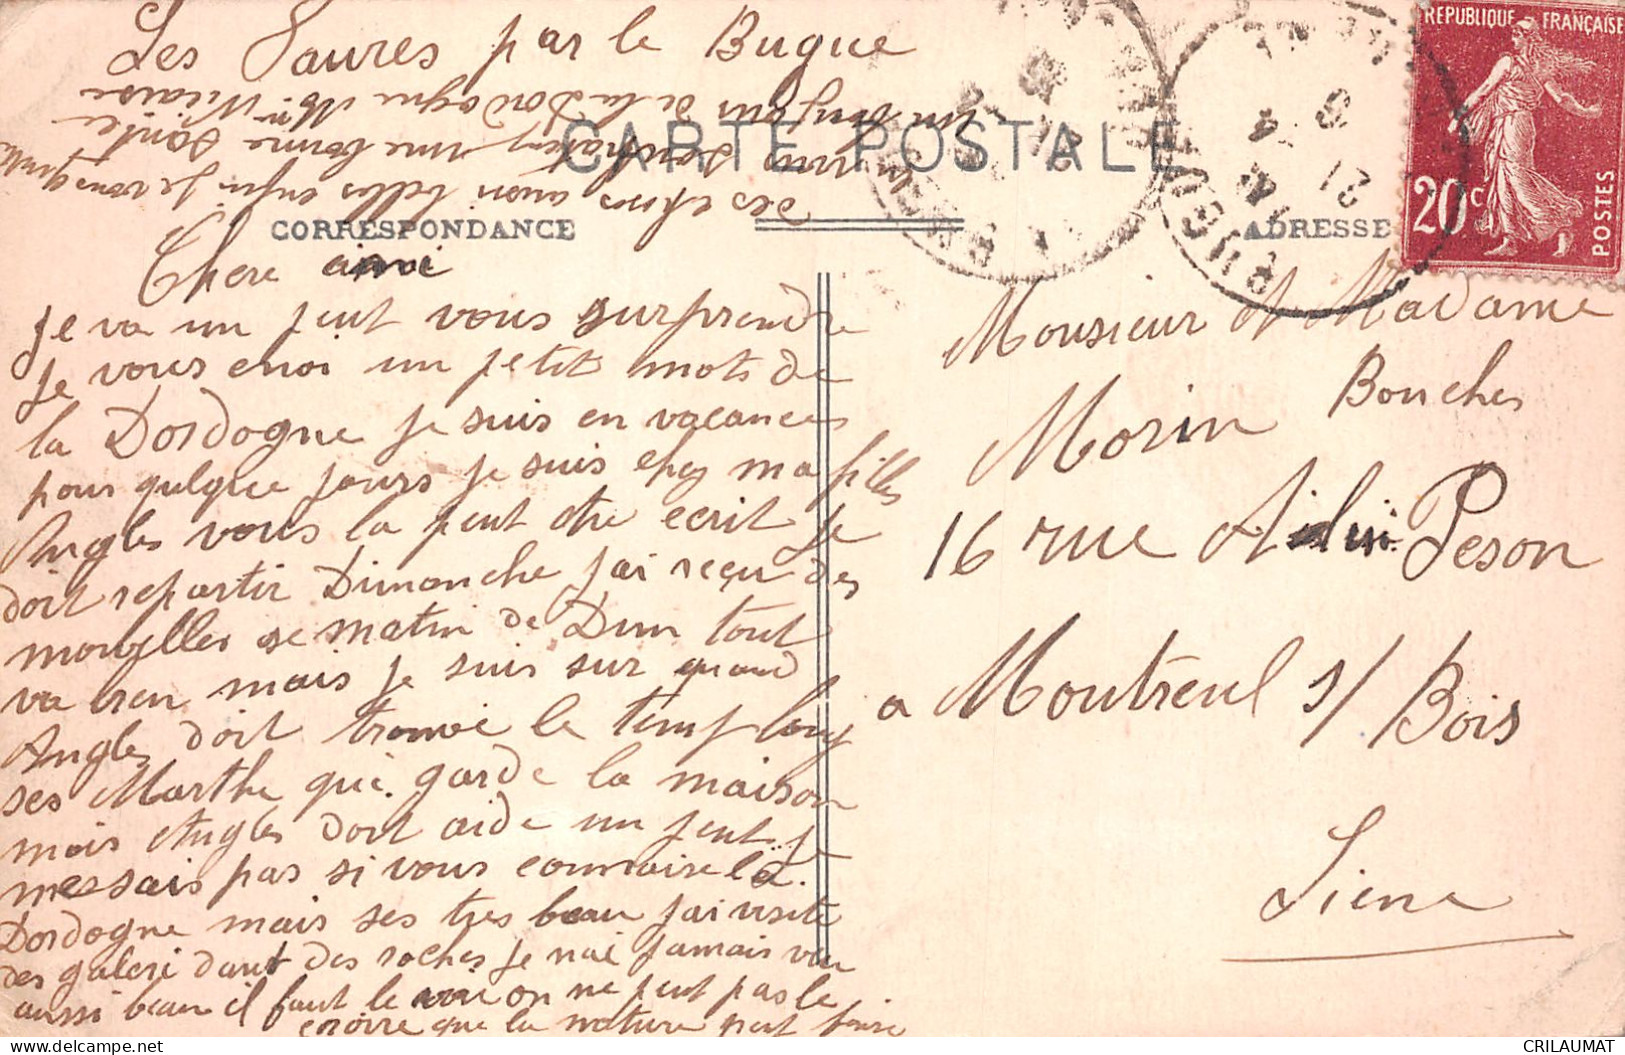 Les Faures par le Bugue
CARTE POSTALE
CORRESPONDANCE
ADRESSE
REPUBLIQUE FRANÇAISE
20c
POSTES
Chere amie
je va un peut vous surprendre
je vous envoi un petit mots de
la Dordogne je suis en vacances
pour quelque jours je suis chez ma filles
Angles vous la peut etre ecrit je
doit repartir Dimanche j'ai reçu des
nouvelles se matin de Dun tout
va bien mais je suis sur quand
Angles doit trouvé le temp long
ses Marthe qui garde la maison
mais Angles doit aidé un peut je
messais pas si vous connaire la
Dordogne mais ses tres beau j'ai visité
des galeri dant des roches je nai jamais vu
aussi beau il faut le voir on ne peut pas le
croire que la nature peut faire
des choses aussi belles enfin je vous quitte
en vous souhaitent une bonne santé
un bonjour de la Dordogne Mme
Monsieur et Madame
Morin Boucher
16 rue Peson
a Montreuil s/ Bois
Siene
BUGUE
21
CRILAUMAT